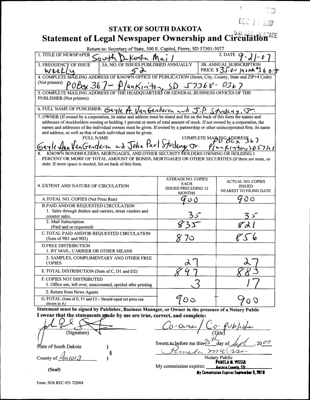 DEC 2 2007
STATE OF SOUTH DAKOTA
Statement of Legal Newspaper Ownership and Circulation
Return to: Secretary of State, 500 E. Capitol, Pierre, SD 57501-5077
1. TITLE OF NEWSPAPER South Dakota Mail
2. DATE 9-21-07
3. FREQUENCY OF ISSUE weekly
3A. NO. OF ISSUES PUBLISHED ANNUALLY 52
3B. ANNUAL SUBSCRIPTION PRICE $
4. COMPLETE MAILING ADDRESS OF KNOWN OFFICE OF PUBLICATION (Street, City, County, State and ZIP+4 Code)
(Not printers) PO Box 367 - Plankinton, SD 57368-0367
5. COMPLETE MAILING ADDRESS OF THE HEADQUARTERS OR GENERAL BUSINESS OFFICES OF THE
PUBLISHER (Not printers)
6. FULL NAME OF PUBLISHER: Gayle A. Van Genderen and J.P. Studeny, Jr.
7. OWNER (If owned by a corporation, its name and address must be stated and list on the back of this form the names and
addresses of stockholders owning or holding 1 percent or more of total amount of stock. If not owned by a corporation, the
names and addresses of the individual owners must be given. If owned by a partnership or other unincorporated firm, its name
and address, as well as that of each individual must be given.
FULL NAME COMPLETE MAILING ADDRESS
PO Box 367
Gayle Van Genderen and John Paul Studeny Jr Plankinton, SD 57368
8. KNOWN BONDHOLDERS, MORTGAGES, AND OTHER SECURITY HOLDERS OWNING OR HOLDING 1
PERCENT OR MORE OF TOTAL AMOUNT OF BONDS, MORTGAGES OR OTHER SECURITIES (If there are none, so
state. If more space is needed, list on back of this form.
9. EXTENT AND NATURE OF CIRCULATION
AVERAGE NO. COPIES EACH ISSUED PRECEDING 12 MONTHS
ACTUAL NO. COPIES ISSUED NEAREST TO FILING DATE
A. TOTAL NO. COPIES (Net Press Run) 900 900
B. PAID AND/OR REQUESTED CIRCULATION
1. Sales through dealers and carriers, street vendors and
counter sales. 35 35
2. Mail Subscription
(Paid and or requested) 835 821
C. TOTAL PAID AND/OR REQUESTED CIRCULATION
(Sum of 9B1 and 9B2) 870 856
D. FREE DISTRIBUTION
1. BY MAIL, CARRIER OR OTHER MEANS
2. SAMPLES, COMPLIMENTARY AND OTHER FREE
COPIES 27 27
E. TOTAL DISTRIBUTION (Sum of C, D1 and D2) 897 883
F. COPIES NOT DISTRIBUTED
1. Office use, left over, unaccounted, spoiled after printing 3 17
2. Return from News Agents
G. TOTAL (Sum of E, F1 and F2 - Should equal net press run
shown in A) 900 900
Statement must be signed by Publisher, Business Manager, or Owner in the presence of a Notary Public
I swear that the statements made by me are true, correct, and complete:
Co-owner/Co-Publisher
(Signature) (Title)
State of South Dakota )
§
County of Aurora )
Sworn to before me this day of Sept, 2007
Notary Public
(Seal)
My commission expires:
PAMELA M. VISSIA
Aurora County, SD
My Commission Expires September 3, 2010
Form: SOS REC 051 7/2004